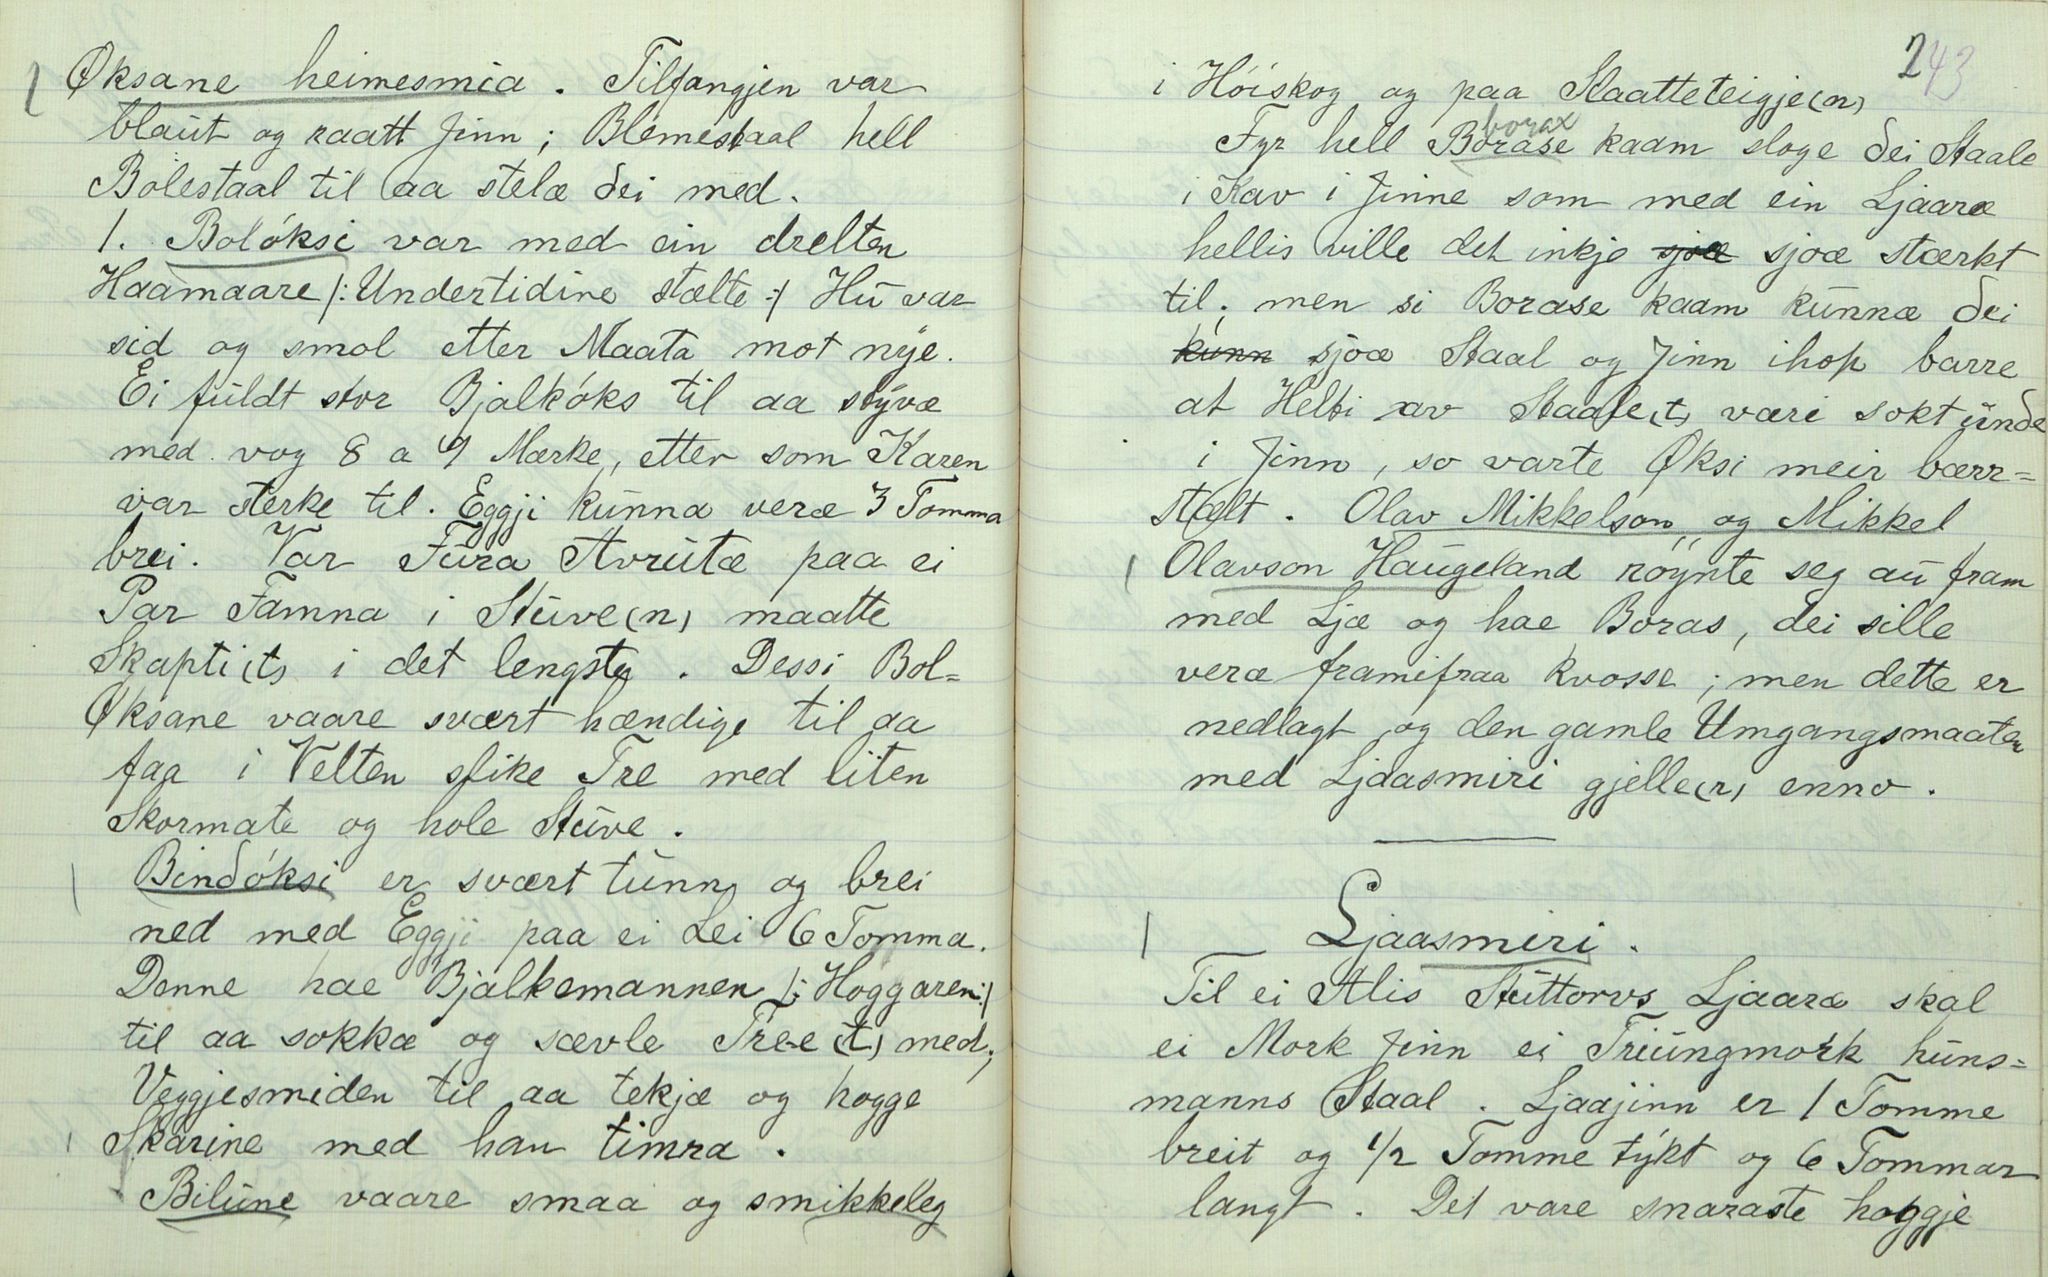 Øksane heimesmia. Tilfangjen var
blaut og raatt Jinn; Blemestaal hell
Bolestaal til aa stelæ dei med.
1. Bolóksi var med ein drelten
Haamaare /: Undertidine stælte :/ Hu var
sid og smol etter Maata mot nye.
Ei fuldt stor Bjalkóks til aa styvæ
med vog 8 a 9 Mærke, etter som Karen
var sterke til. Eggji kunna veræ 3 Tomma
brei. Var Fura Avrutæ paa ei
Par Famna i Stuve(n) maatte
Skapti(t) i det lengste. Dessi Bol=
Øksane vaare svært hændige til aa
faa i Velten slike Tre med liten
Skormate og hole Stuve.
Bindóksi er svært tunn og brei
ned med Eggji paa ei Lei 6 Tomma.
Denne hae Bjalkemannen /: Hoggaren :/
til aa sokkæ og sævle Tree(t) med;
Veggjesmiden til aa tekjæ og hogge
Skarine med han timra.
Bilune vaare smaa og smikkeleg
243
i Hóiskog og paa Slaatteteigje(n)
borax
Fyr hell Borase kaam sloge dei Staale
i Kav i Jinne som med ein Ljaaræ
hellis ville det inkje sjoæ sjoæ stærkt
til; men si Borase kaam kunnæ dei
kunn sjoæ Staal og Jinn ihop barre
at Helti av Staale(t) væri sokt unde
i Jinn, so varte Øksi meir bærr=
stælt. Olav Mikkelson og Mikkel
Olavson Haugeland róynte seg au fram
med Ljæ og hae Boras, dei sille
veræ framifraa kvosse; men dette er
nedlagt og den gamle Umgangsmaaten
med Ljaasmiri gjelle(r) enno.
Ljaasmiri.
Til ei Alis Stuttorvs Ljaaræ skal
ei Mork Jinn ei Triungmork huns=
manns Staal. Ljaajinn er 1 Tomme
breit og 1/2 Tomme tykt og 6 Tommar
langt. Det vare snaraste hoggje